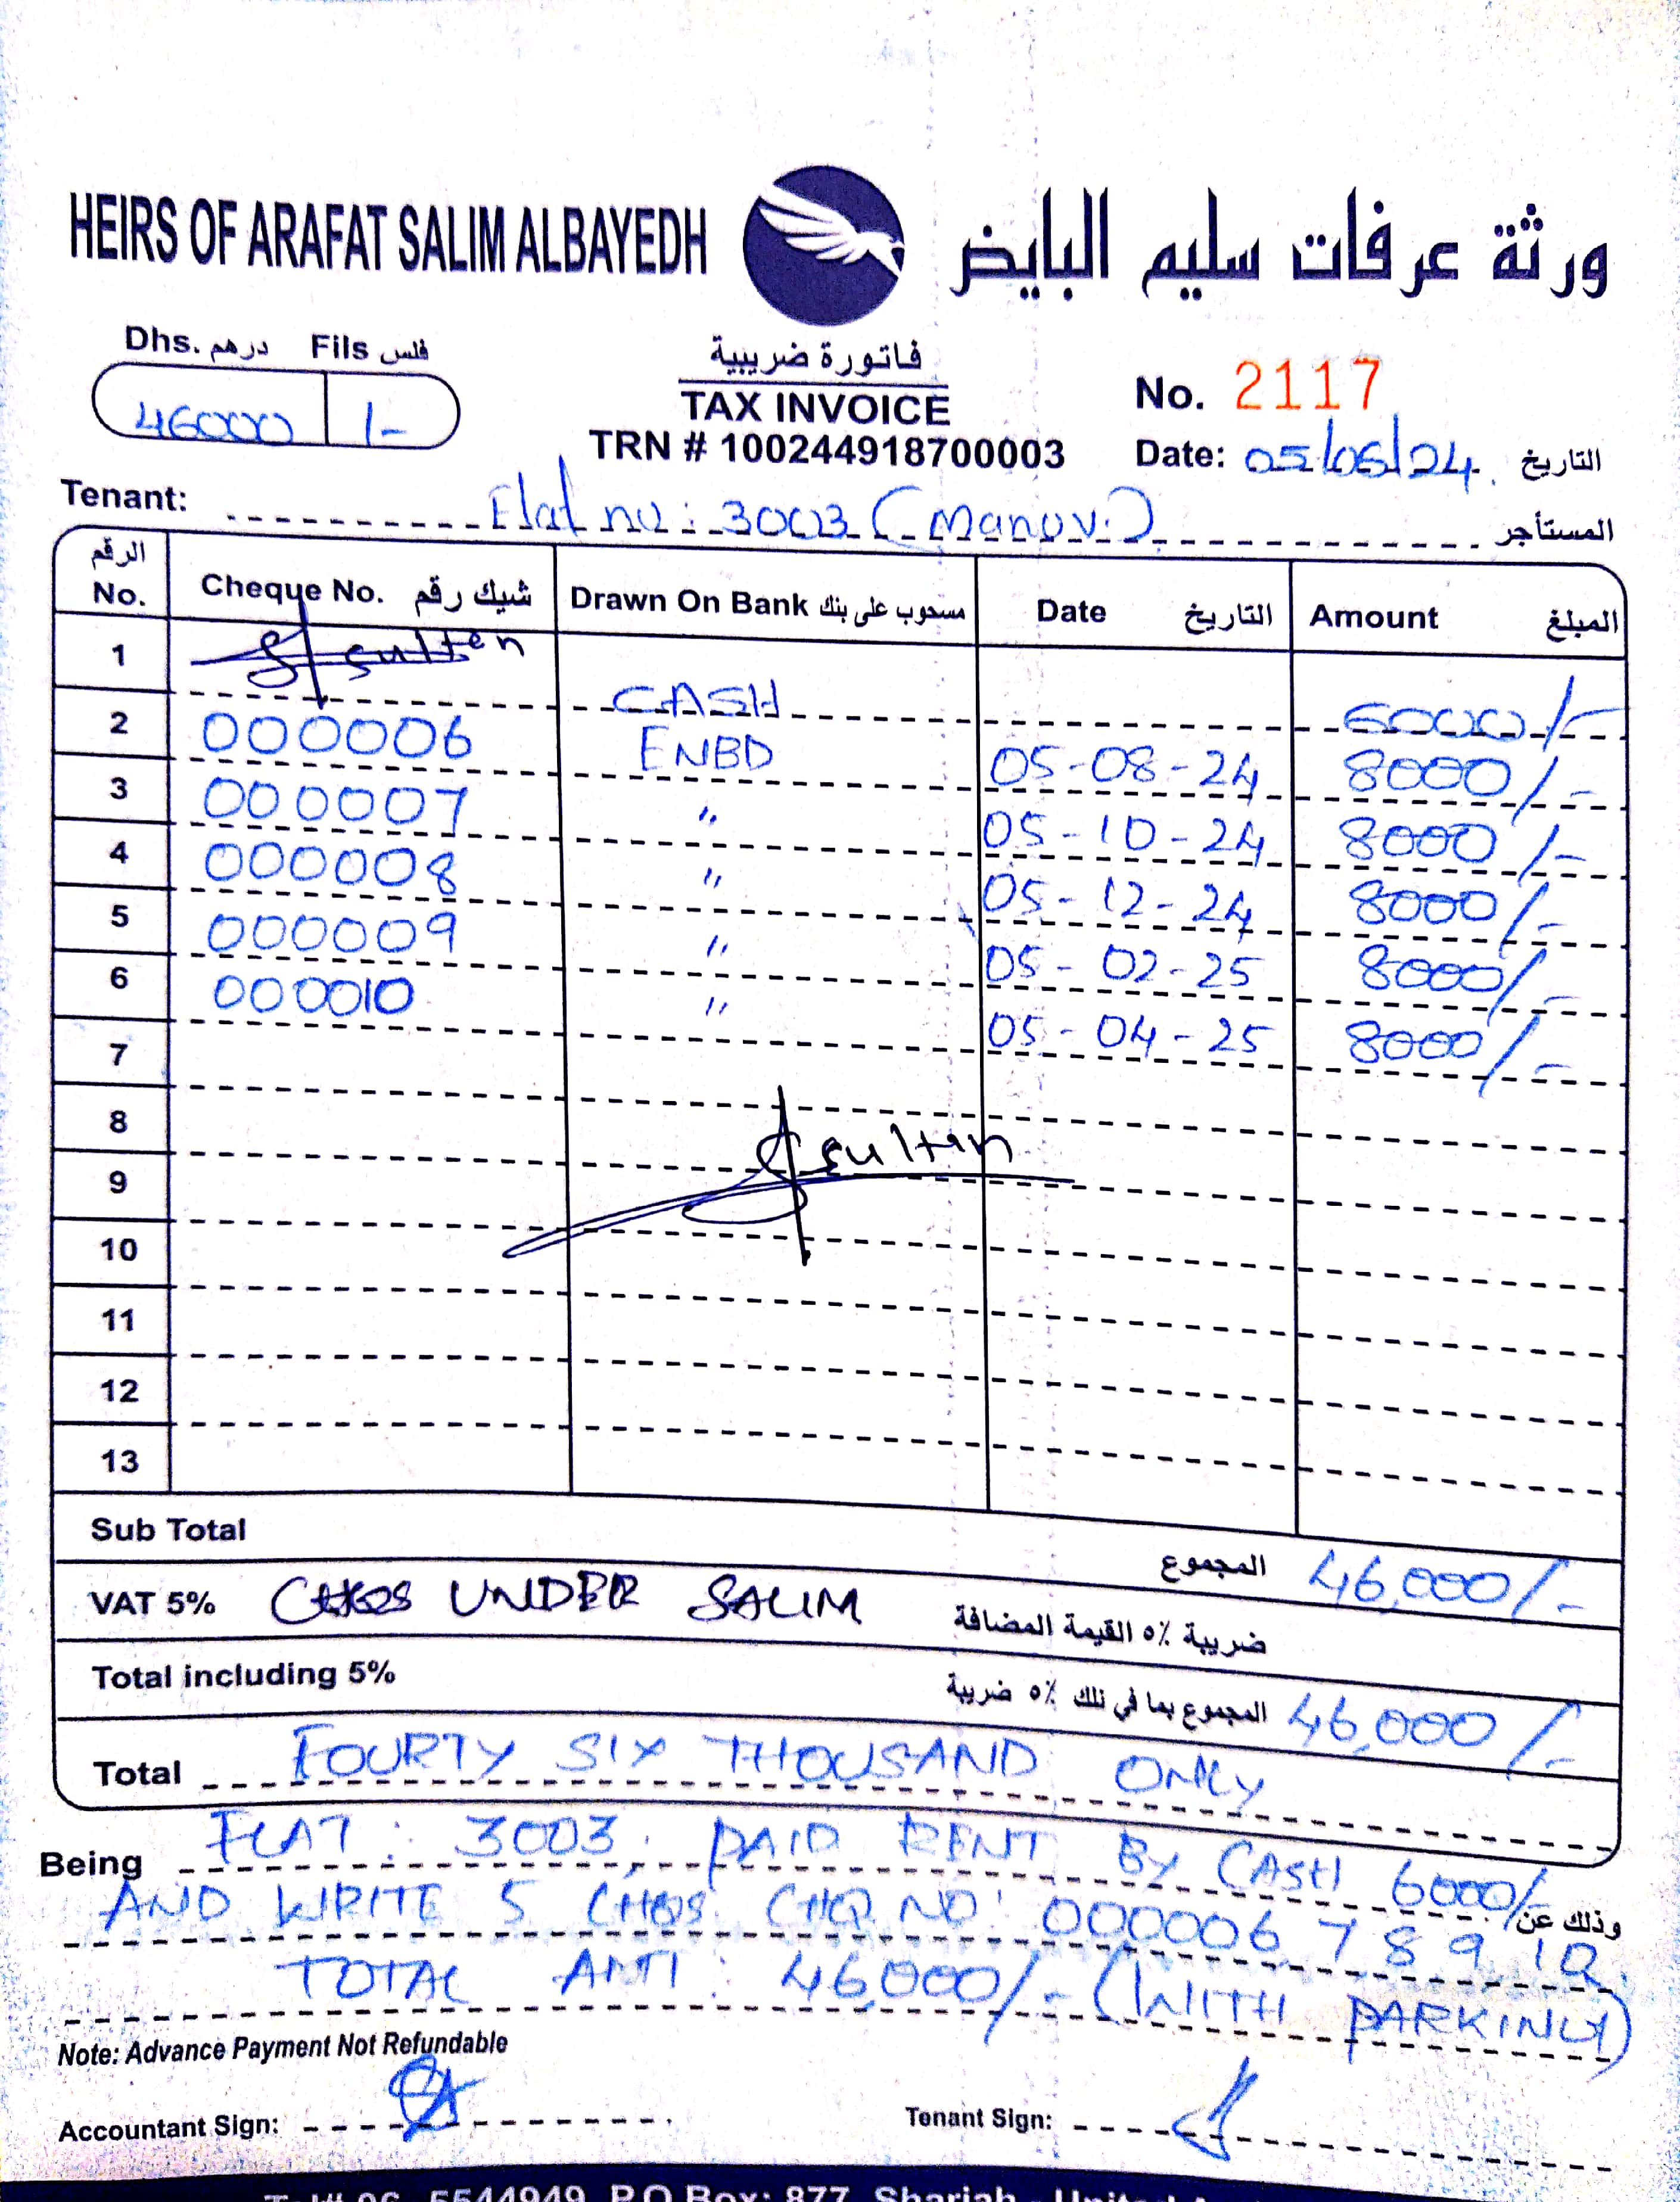 HEIRS OF ARAFAT SALIM ALBAYEDH ورثة عرفات سليم البايض
Dhs. درهم Fils فلس
46000 /-
فاتورة ضريبية
TAX INVOICE
TRN # 100244918700003
No. 2117
Date: 05/06/24. التاريخ
Tenant: Flat no: 3003 (Manuv.) المستأجر
الرقم No. Cheque No. شيك رقم Drawn On Bank مسحوب على بنك Date التاريخ Amount المبلغ
1 sultan CASH 6000/-
2 000006 ENBD 05-08-24 8000/-
3 000007 " 05-10-24 8000/-
4 000008 " 05-12-24 8000/-
5 000009 " 05-02-25 8000/-
6 000010 " 05-04-25 8000/-
7
8
sultan
9
10
11
12
13
Sub Total المجموع 46,000/-
VAT 5% CHQS UNDER SALIM ضريبة ٥٪ القيمة المضافة
Total including 5% المجموع بما في ذلك ٥٪ ضريبة 46,000/-
Total FOURTY SIX THOUSAND ONLY
Being FLAT: 3003, PAID RENT BY CASH 6000/- وذلك عن
AND WRITE 5 CHQS. CHQ NO: 000006 7 8 9 10.
TOTAL AMT: 46,000/- (WITH PARKING)
Note: Advance Payment Not Refundable
Accountant Sign: Tenant Sign:
5544949 P.O.Box: 877, Sharjah - United